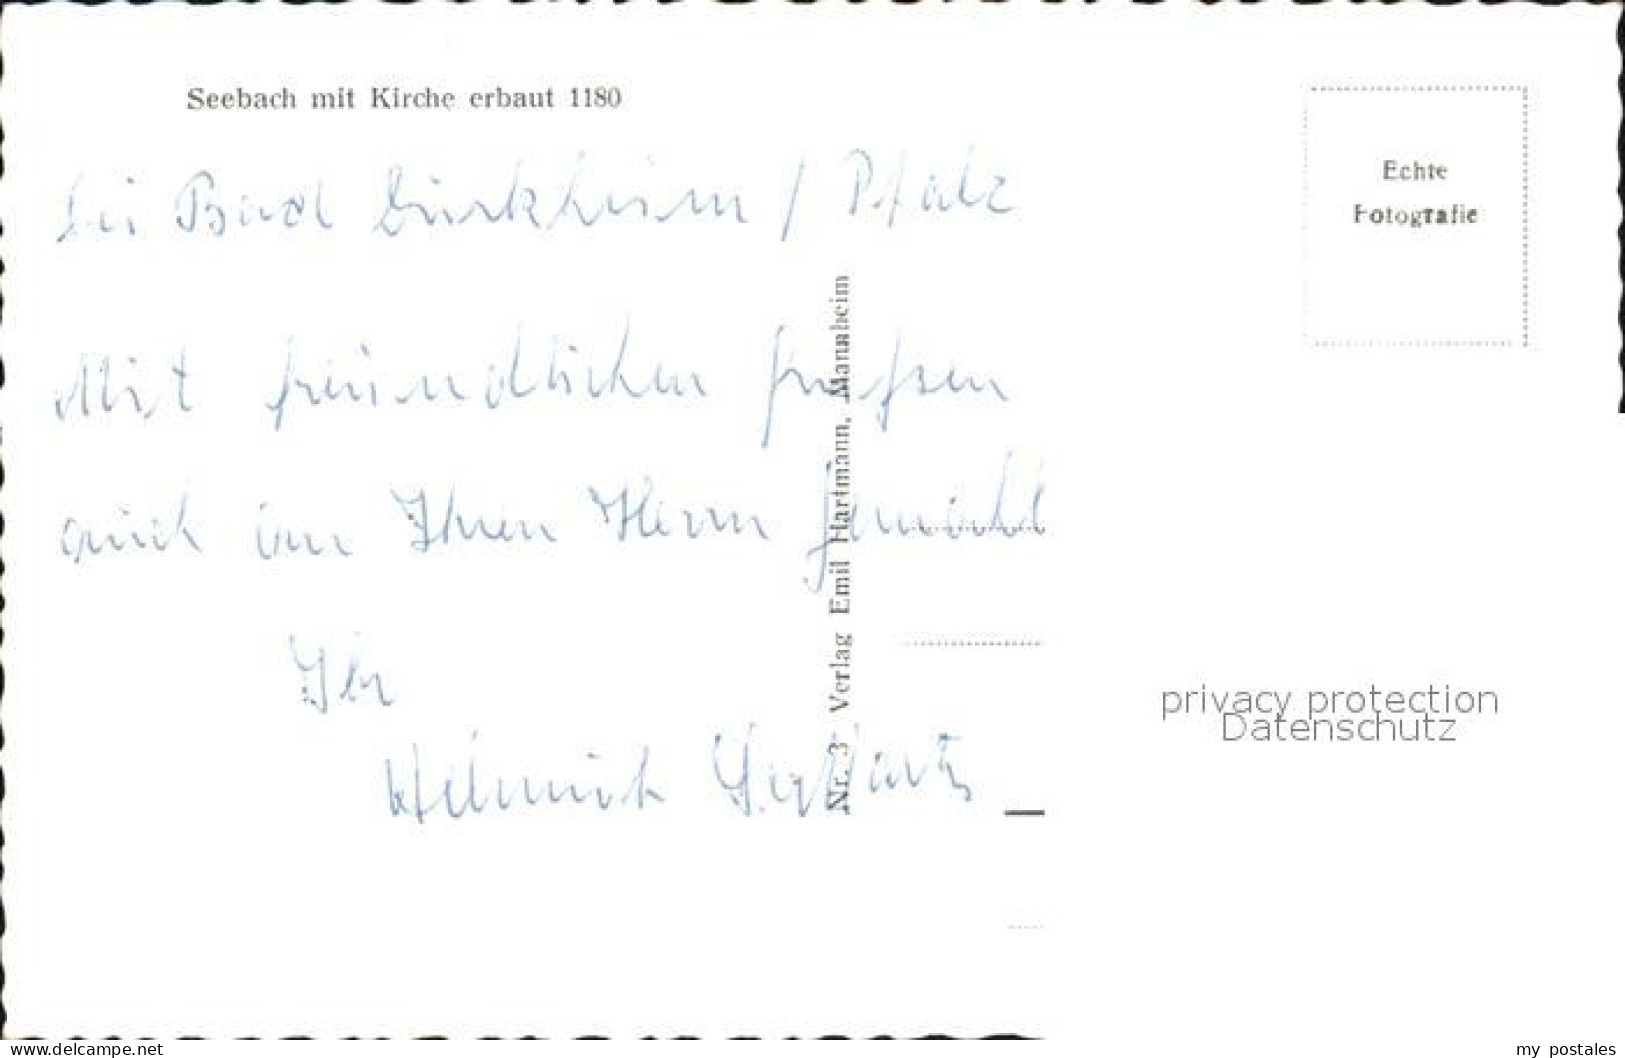 Seebach mit Kirche erbaut 1180
bei Bad Dürkheim / Pfalz
Echte
Fotografie
Mit freundlichen Grüßen
auch an Ihren Herrn Gemahl
Ihr
Helmut
Nr. 3 Verlag Emil Hartmann, Mannheim
privacy protection
Datenschutz
www.delcampe.net
my_postales